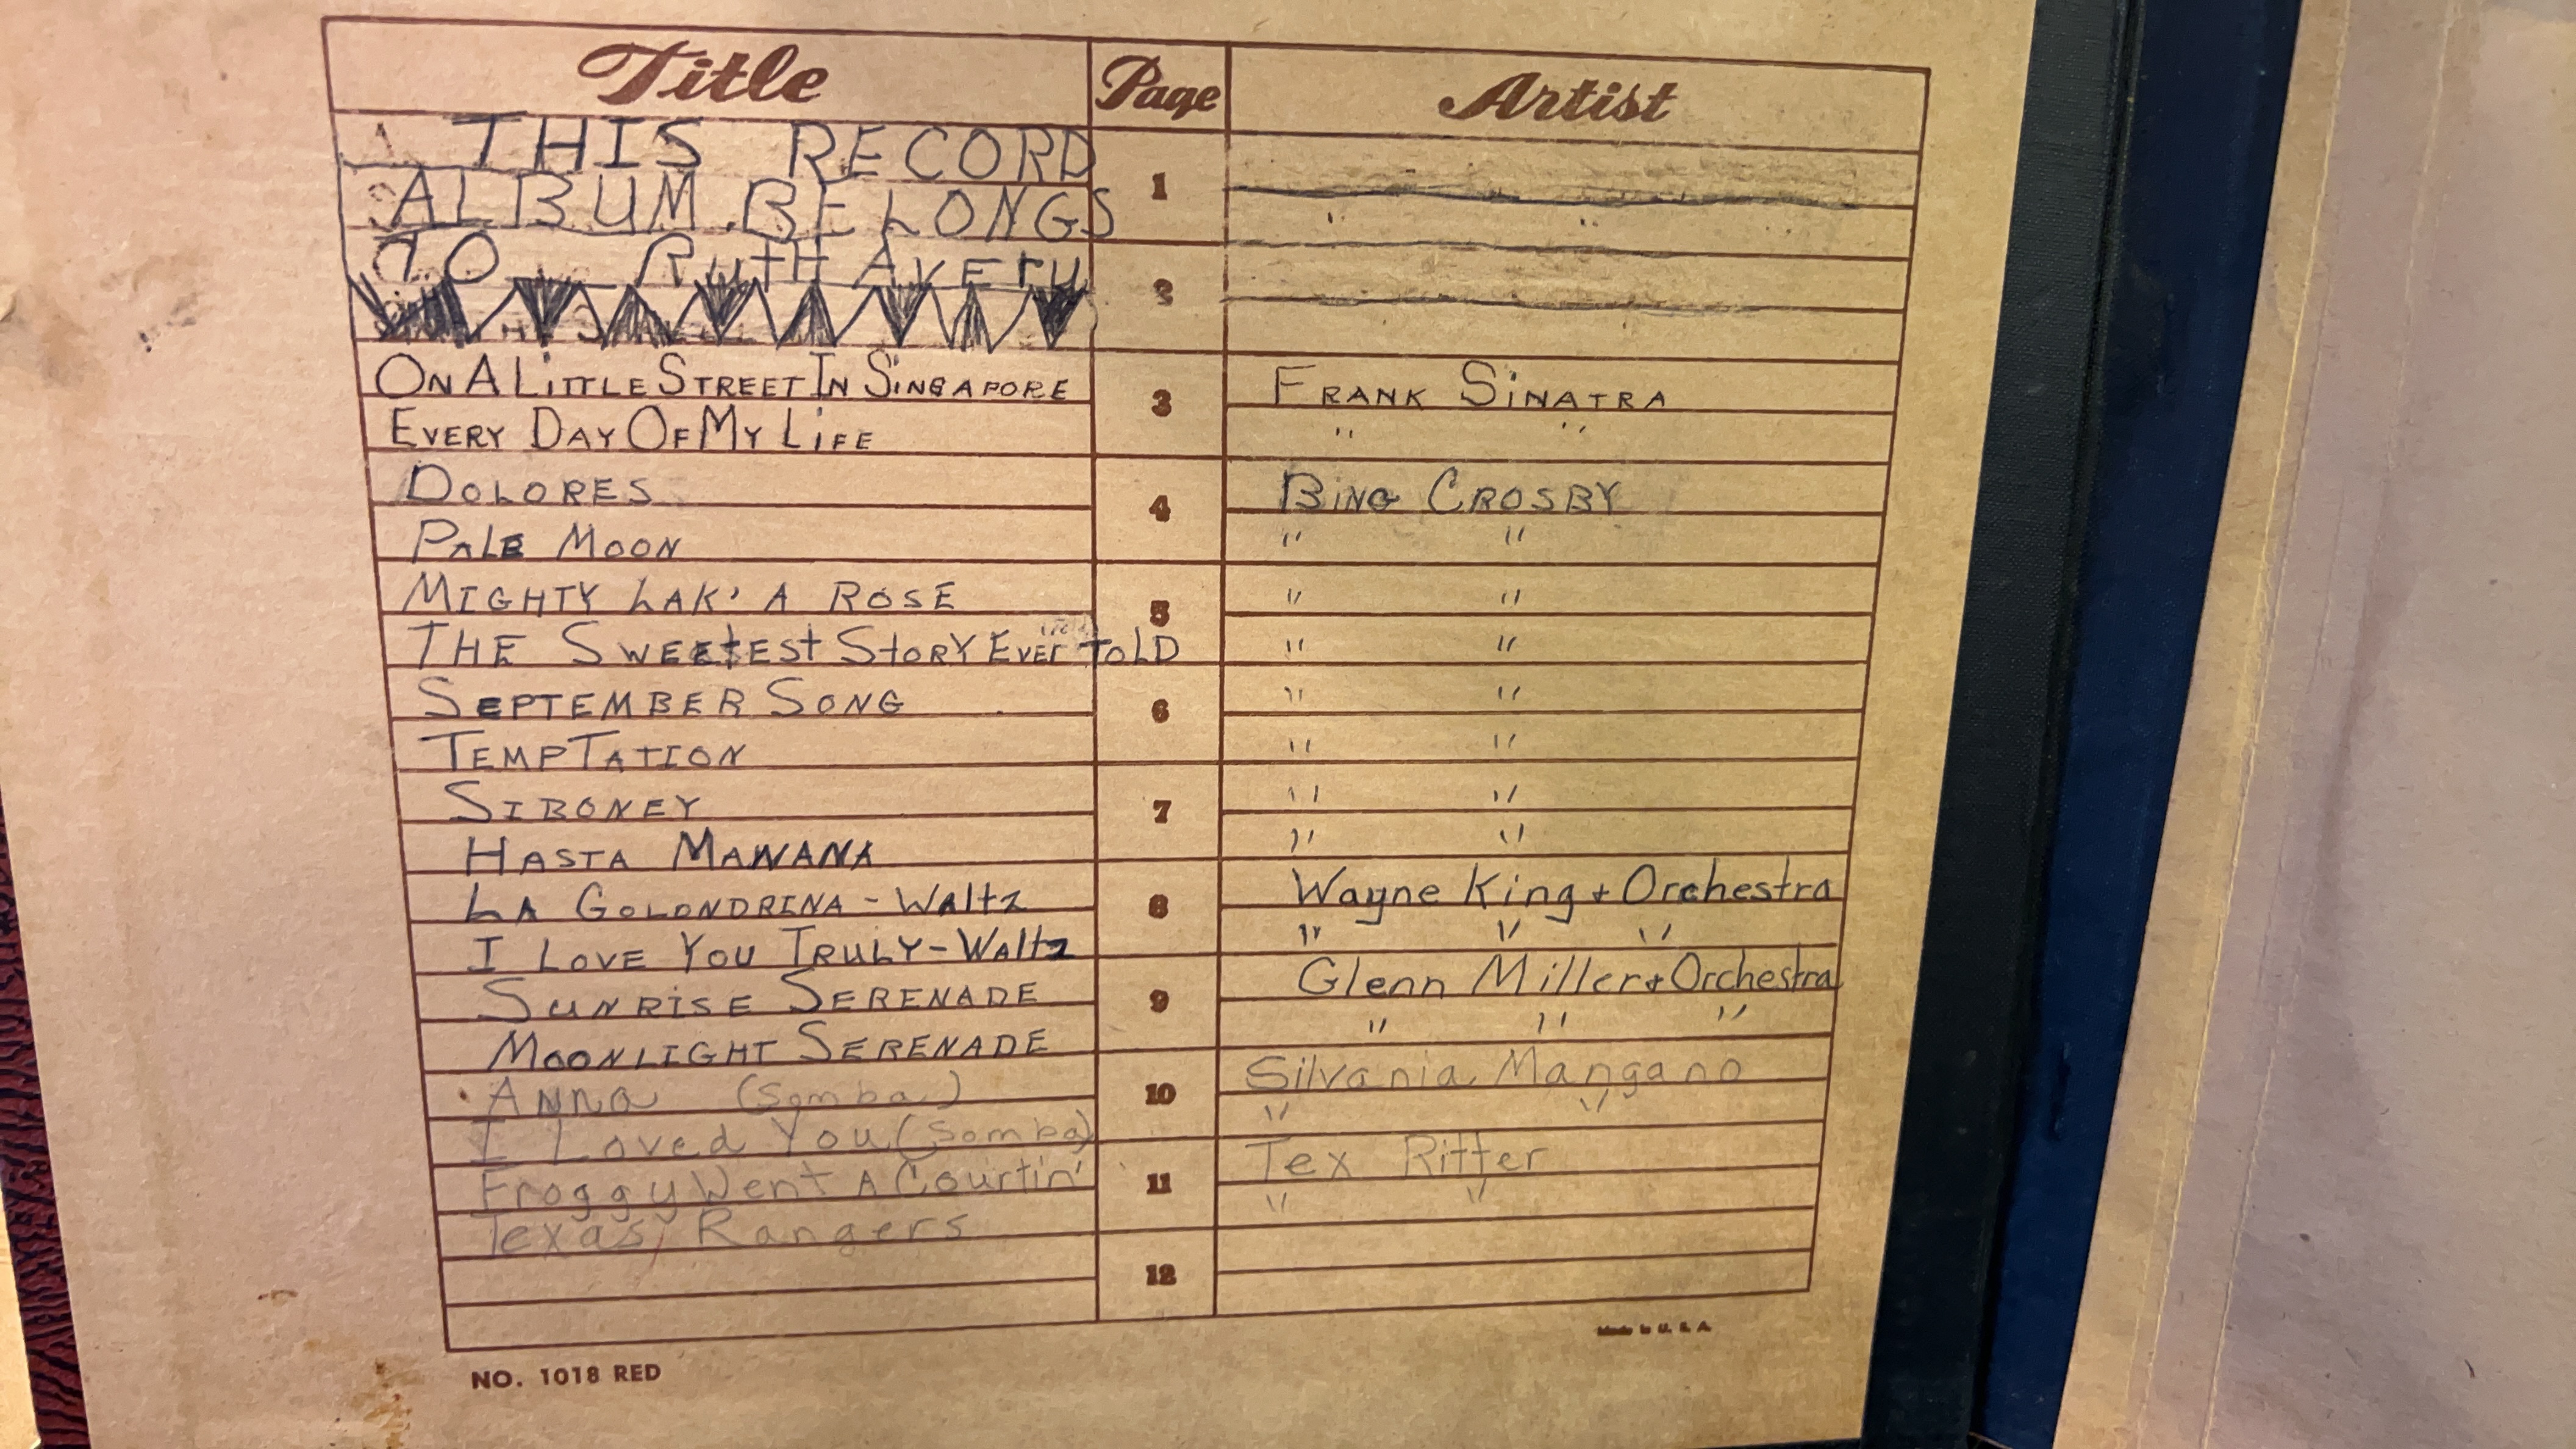 Title Page Artist
THIS RECORD
ALBUM BELONGS 1
TO RUTH AVERY
2
ON A LITTLE STREET IN SINGAPORE 3 FRANK SINATRA
EVERY DAY OF MY LIFE " "
DOLORES 4 BING CROSBY
PALE MOON " "
MIGHTY LAK' A ROSE 5 " "
THE SWEETEST STORY EVER TOLD " "
SEPTEMBER SONG 6 " "
TEMPTATION " "
SIBONEY 7 " "
HASTA MAWANA " "
LA GOLONDRINA - WALTZ 8 Wayne King + Orchestra
I LOVE YOU TRULY - WALTZ " " "
SUNRISE SERENADE 9 Glenn Miller + Orchestra
MOONLIGHT SERENADE " " "
Anna (Samba) 10 Silvania Mangano
I Loved You (Samba) " "
Froggy Went A Courtin' 11 Tex Ritter
Texas Rangers " "
12
NO. 1018 RED
Made in U. S. A.